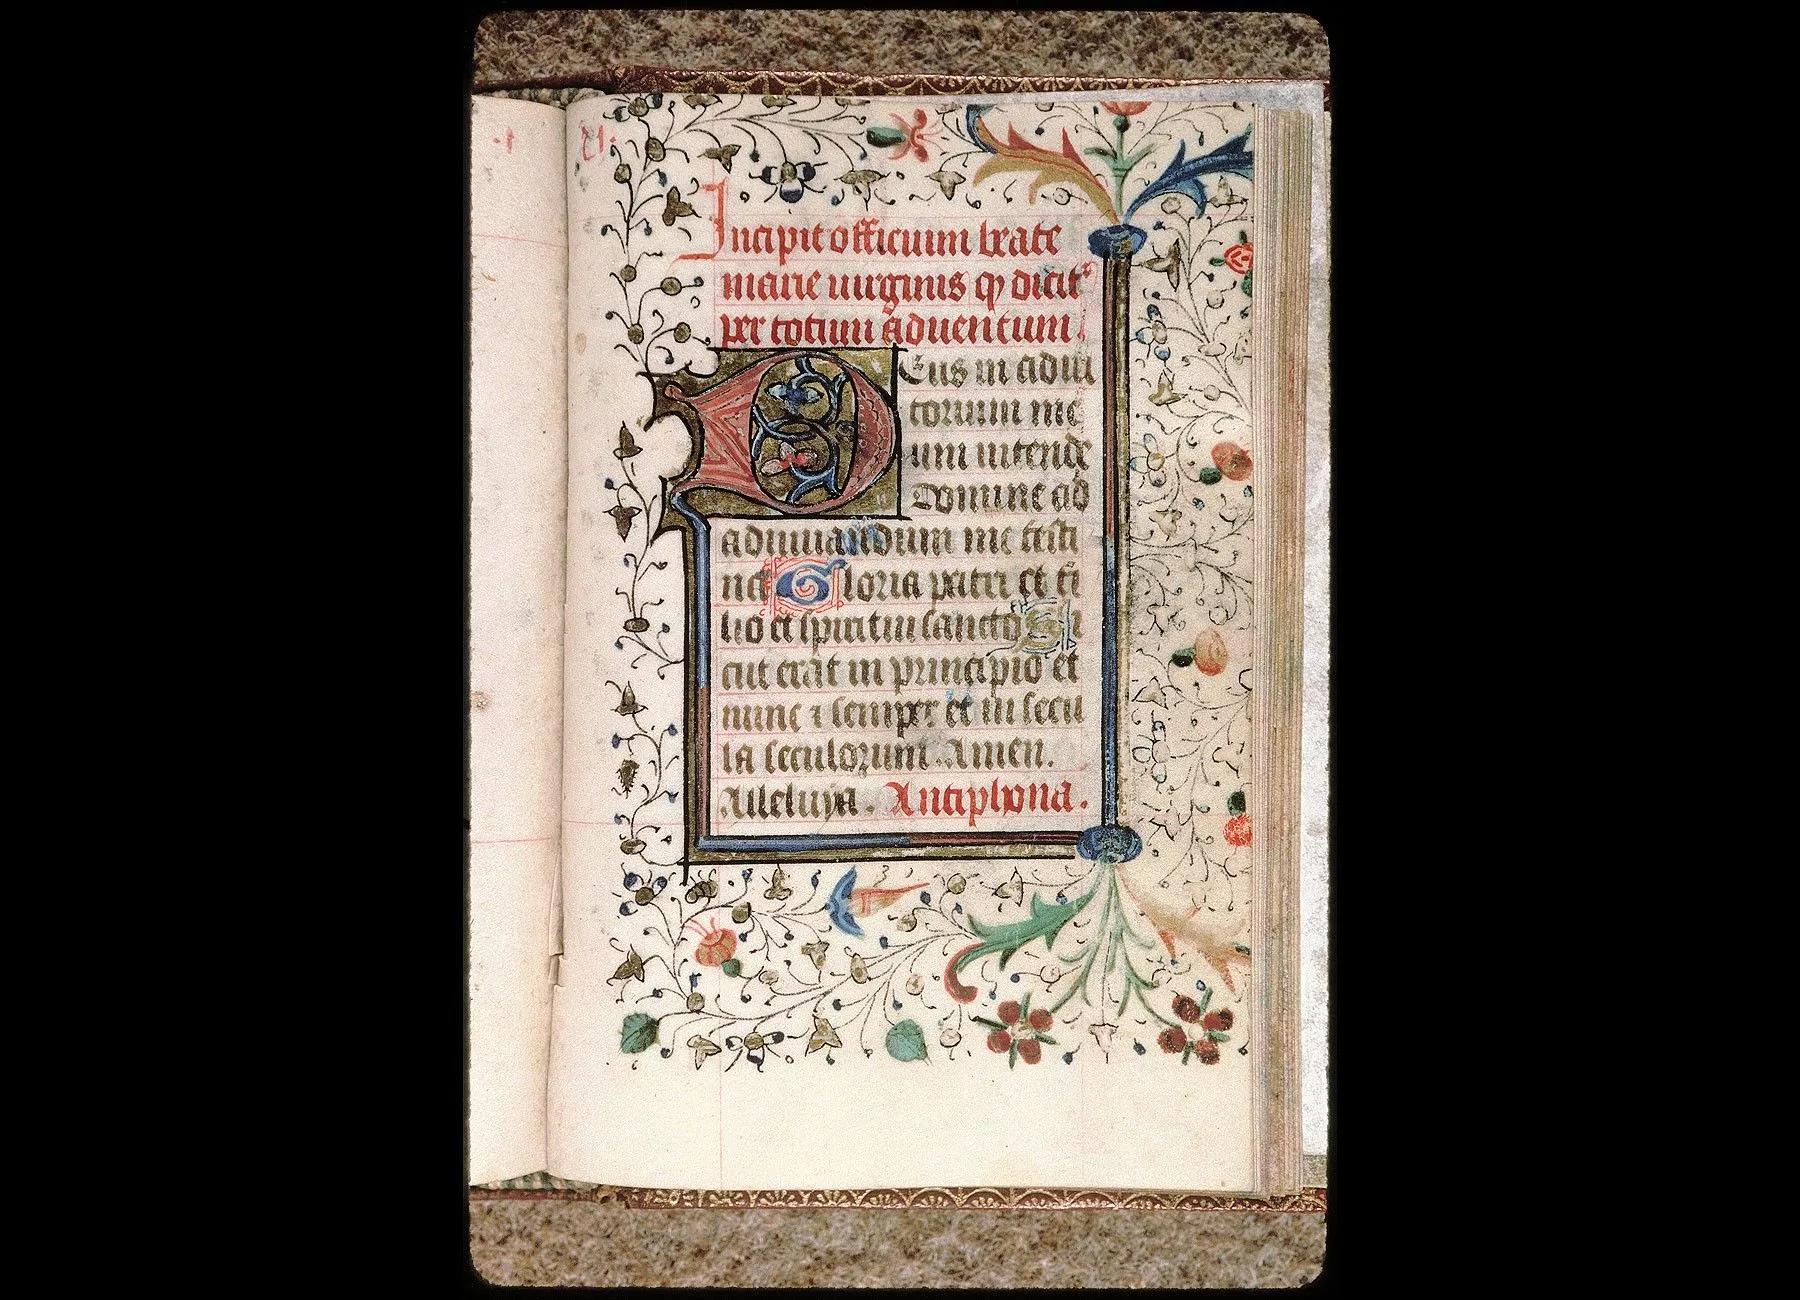 ·1·
·13·
Incipit officium beate
marie uirginis q̄ dicit᷑
per totum aduentum.
Deus in adiu
torium me
um intende
Domine ad
adiuuandum me festi
na Gloria patri et fi
lio et spiritui sancto Si
cut erat in principio et
nunc ⁊ semper et in secu
la seculorum. Amen.
Alleluya. Antiphona.